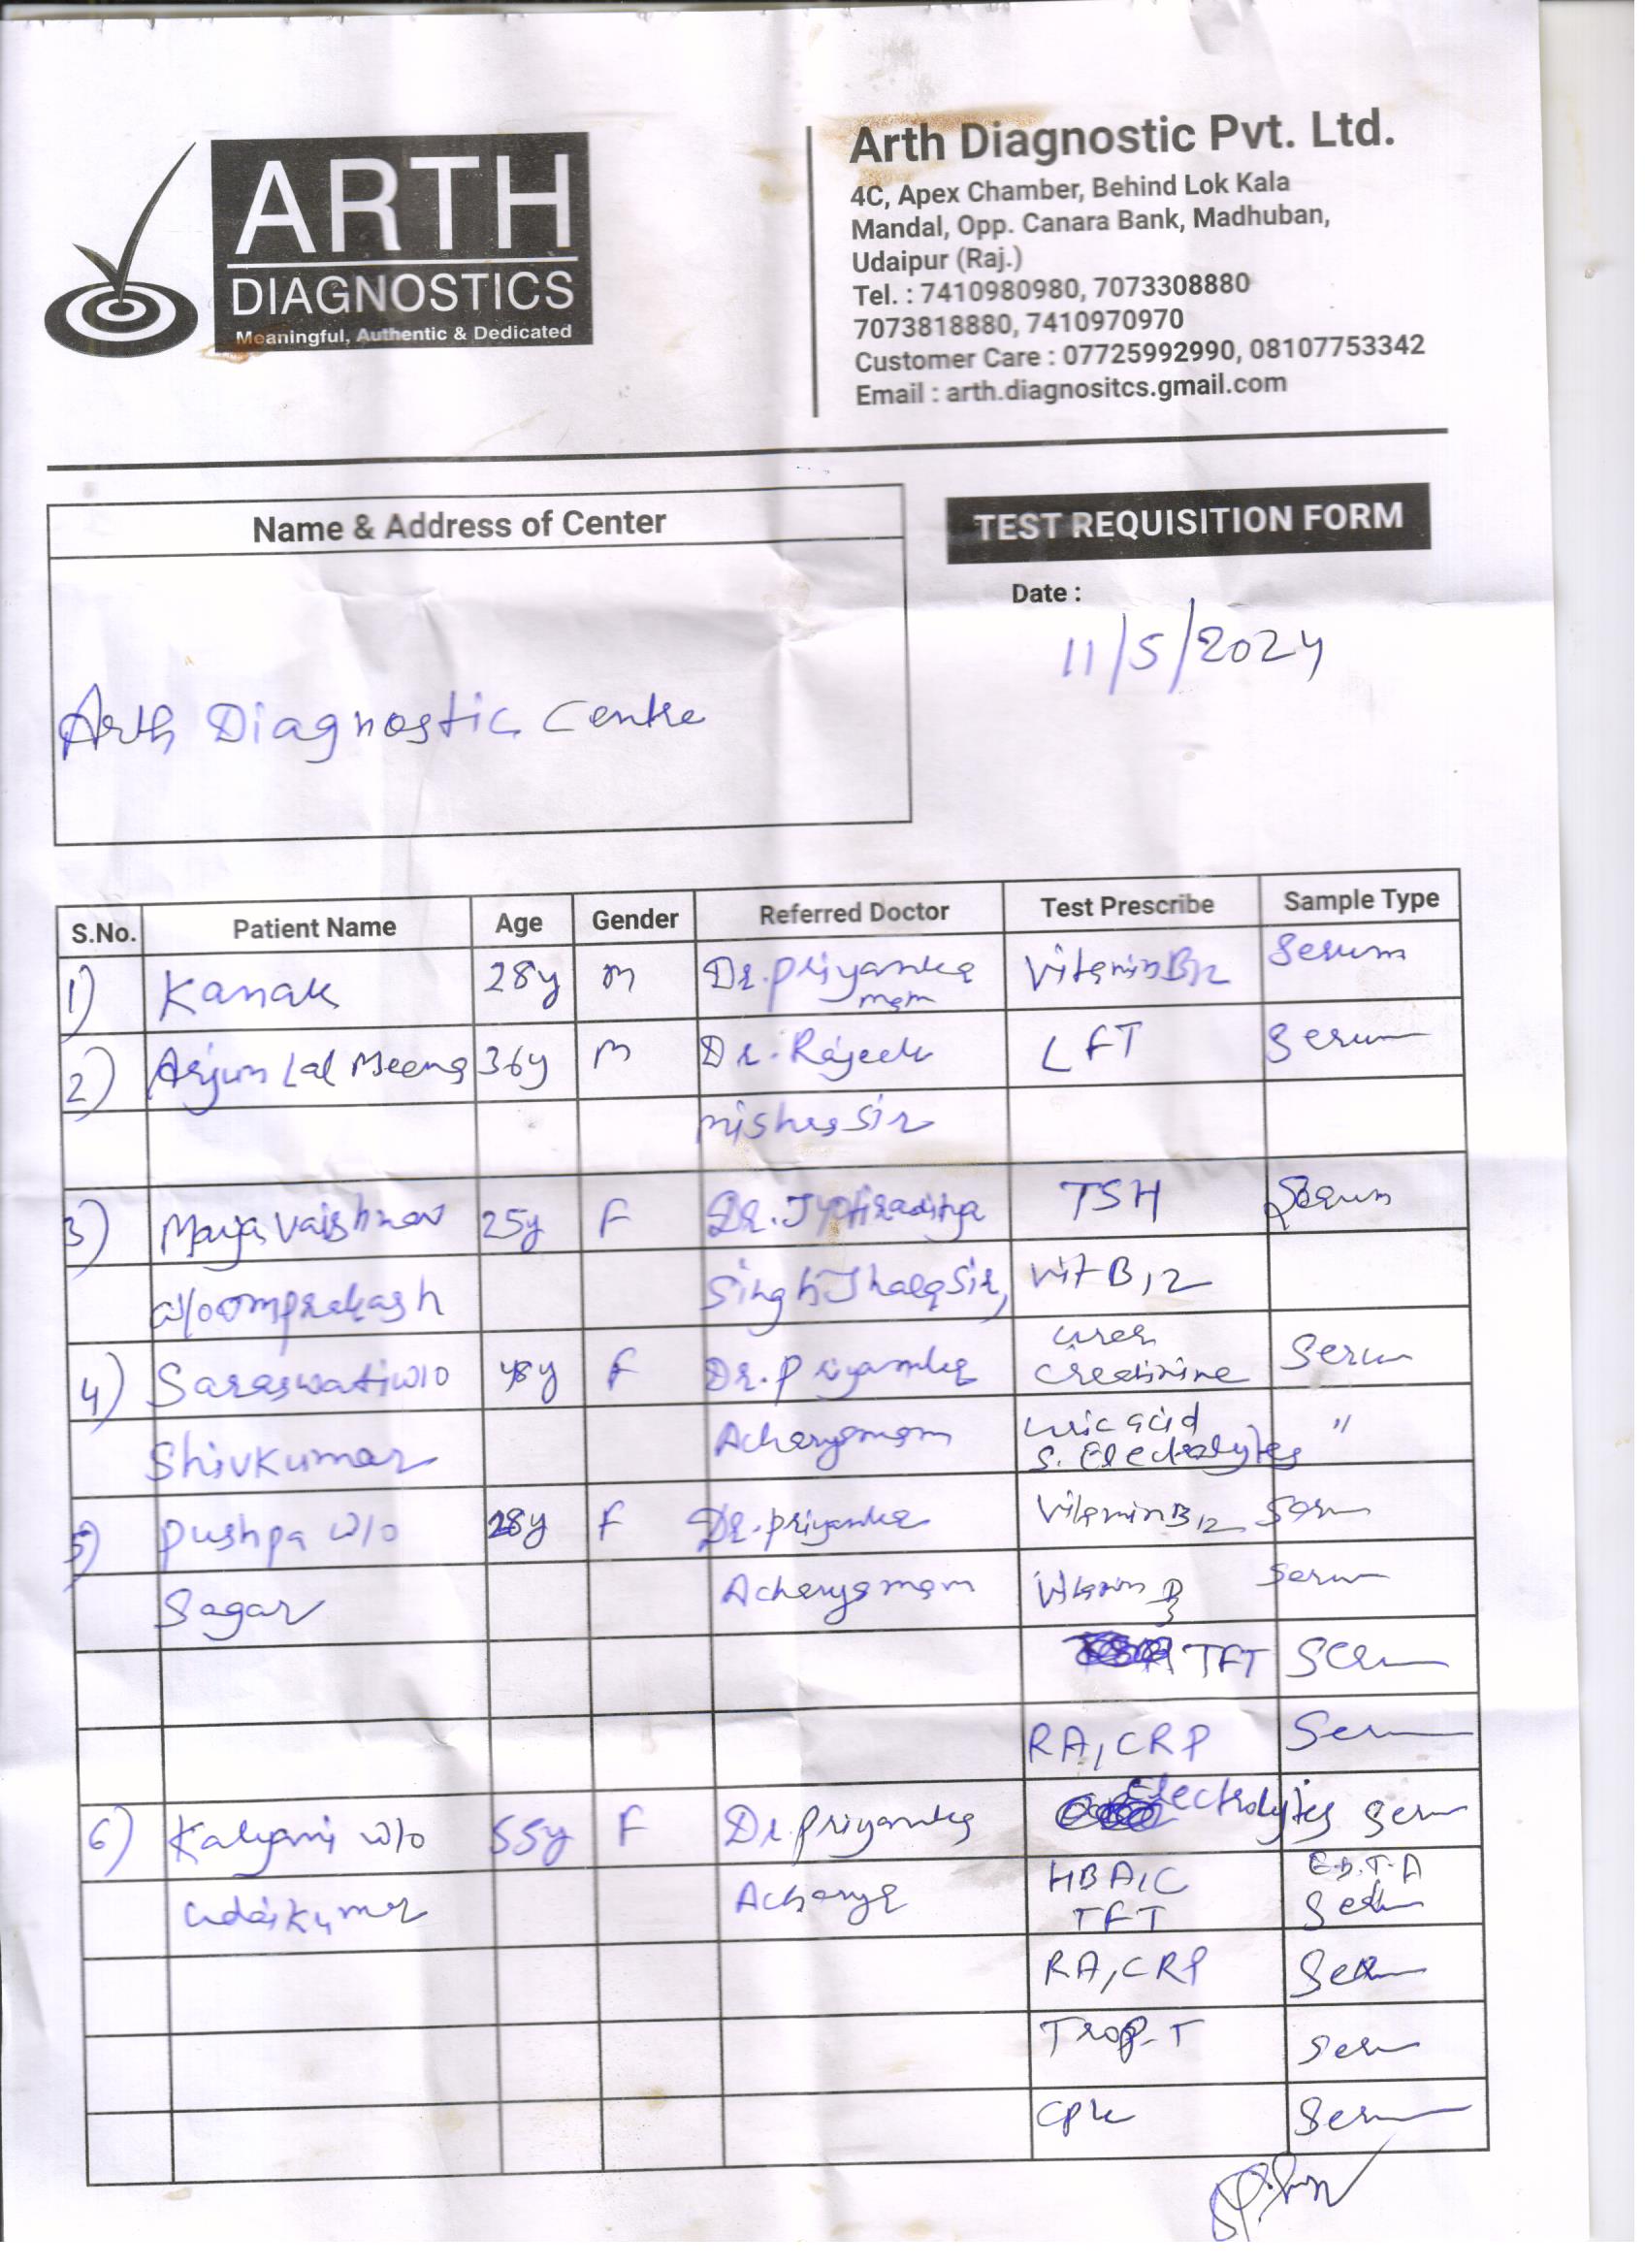 ARTH
DIAGNOSTICS
Meaningful, Authentic & Dedicated
Arth Diagnostic Pvt. Ltd.
4C, Apex Chamber, Behind Lok Kala
Mandal, Opp. Canara Bank, Madhuban,
Udaipur (Raj.)
Tel. : 7410980980, 7073308880
7073818880, 7410970970
Customer Care : 07725992990, 08107753342
Email : arth.diagnositcs.gmail.com
Name & Address of Center
TEST REQUISITION FORM
Date :
11/5/2024
Arth Diagnostic Centre
S.No. Patient Name Age Gender Referred Doctor Test Prescribe Sample Type
1) Kanak 28y M Dr. Priyanka Vitamin B12 Serum
mam
2) Arjun Lal Meena 36y M Dr. Rajeek LFT Serum
mishra Sir
3) Maya Vaishnav 25y F Dr. Jyotiraditya TSH Serum
w/o omprakash Singh Jhala Sir, Vit B12
4) Saraswati w/o 48y F Dr. Priyanka urea Creatinine Serum
Shivkumar Acharya mam uric acid "
S. Electrolytes
5) Pushpa w/o 28y F Dr. Priyanka Vitamin B12 Serum
Sagar Acharya mam Vitamin D3 Serum
TFT Serum
RA, CRP Serum
6) Kalyani w/o 55y F Dr. Priyanka Electrolytes Serum
udaikumar Acharya HBA1C E.D.T.A
TFT Serum
RA, CRP Serum
Trop-T Serum
CPK Serum